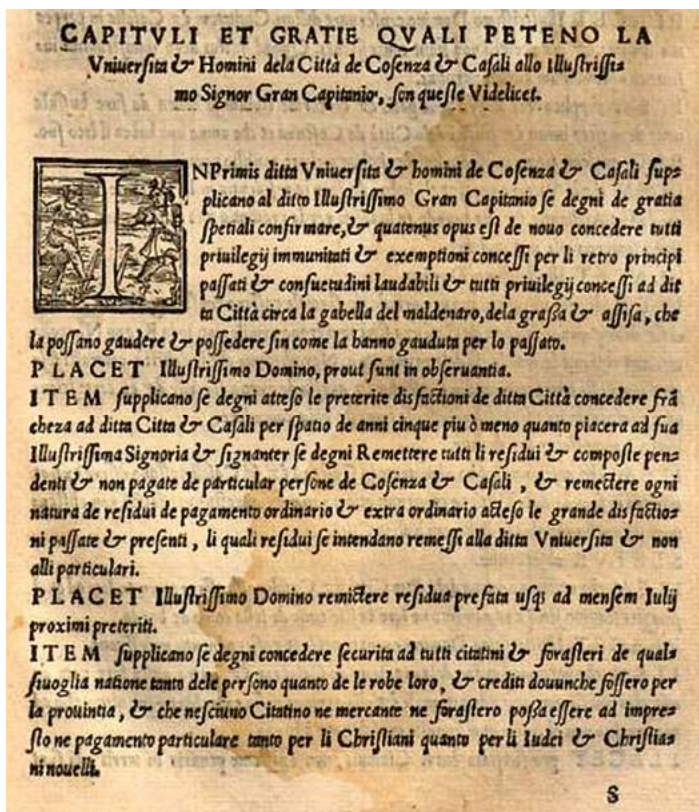 CAPITVLI ET GRATIE QVALI PETENO LA
Vniuersita & Homini dela Città de Cosenza & Casali allo Illustrissi=
mo Signor Gran Capitanio, son queste Videlicet.
INPrimis ditta Vniuersita & homini de Cosenza & Casali sup=
plicano al ditto Illustrissimo Gran Capitanio se degni de gratia
spetiali confirmare, & quatenus opus est de nouo concedere tutti
priuilegij immunitati & exemptioni concessi per li retro principi
passati & consuetudini laudabili & tutti priuilegij concessi ad dit
ta Città circa la gabella del maldenaro, dela grassa & assisa, che
la possano gaudere & possedere sin come la hanno gauduta per lo passato.
PLACET Illustrissimo Domino, prout sunt in obseruantia.
ITEM supplicano se degni atteso le preterite disfactioni de ditta Città concedere frā
cheza ad ditta Citta & Casali per spatio de anni cinque piu ò meno quanto piacera ad sua
Illustrissima Signoria & signanter se degni Remettere tutti li residui & composte pen=
denti & non pagate de particular persone de Cosenza & Casali, & remectere ogni
natura de residui de pagamento ordinario & extra ordinario acteso le grande disfactio=
ni passate & presenti, li quali residui se intendano remessi alla ditta Vniuersita & non
alli particulari.
PLACET Illustrissimo Domino remictere residua prefata usq; ad mensem Iulij
proximi preteriti.
ITEM supplicano se degni concedere securita ad tutti citatini & forasteri de qual=
siuoglia natione tanto dele persono quanto de le robe loro, & crediti douunche fossero per
la prouintia, & che nesciuno Citatino ne mercante ne forastero possa essere ad impre=
sto ne pagamento particulare tanto per li Christiani quanto per li Iudei & Christia=
ni nouelli.
S